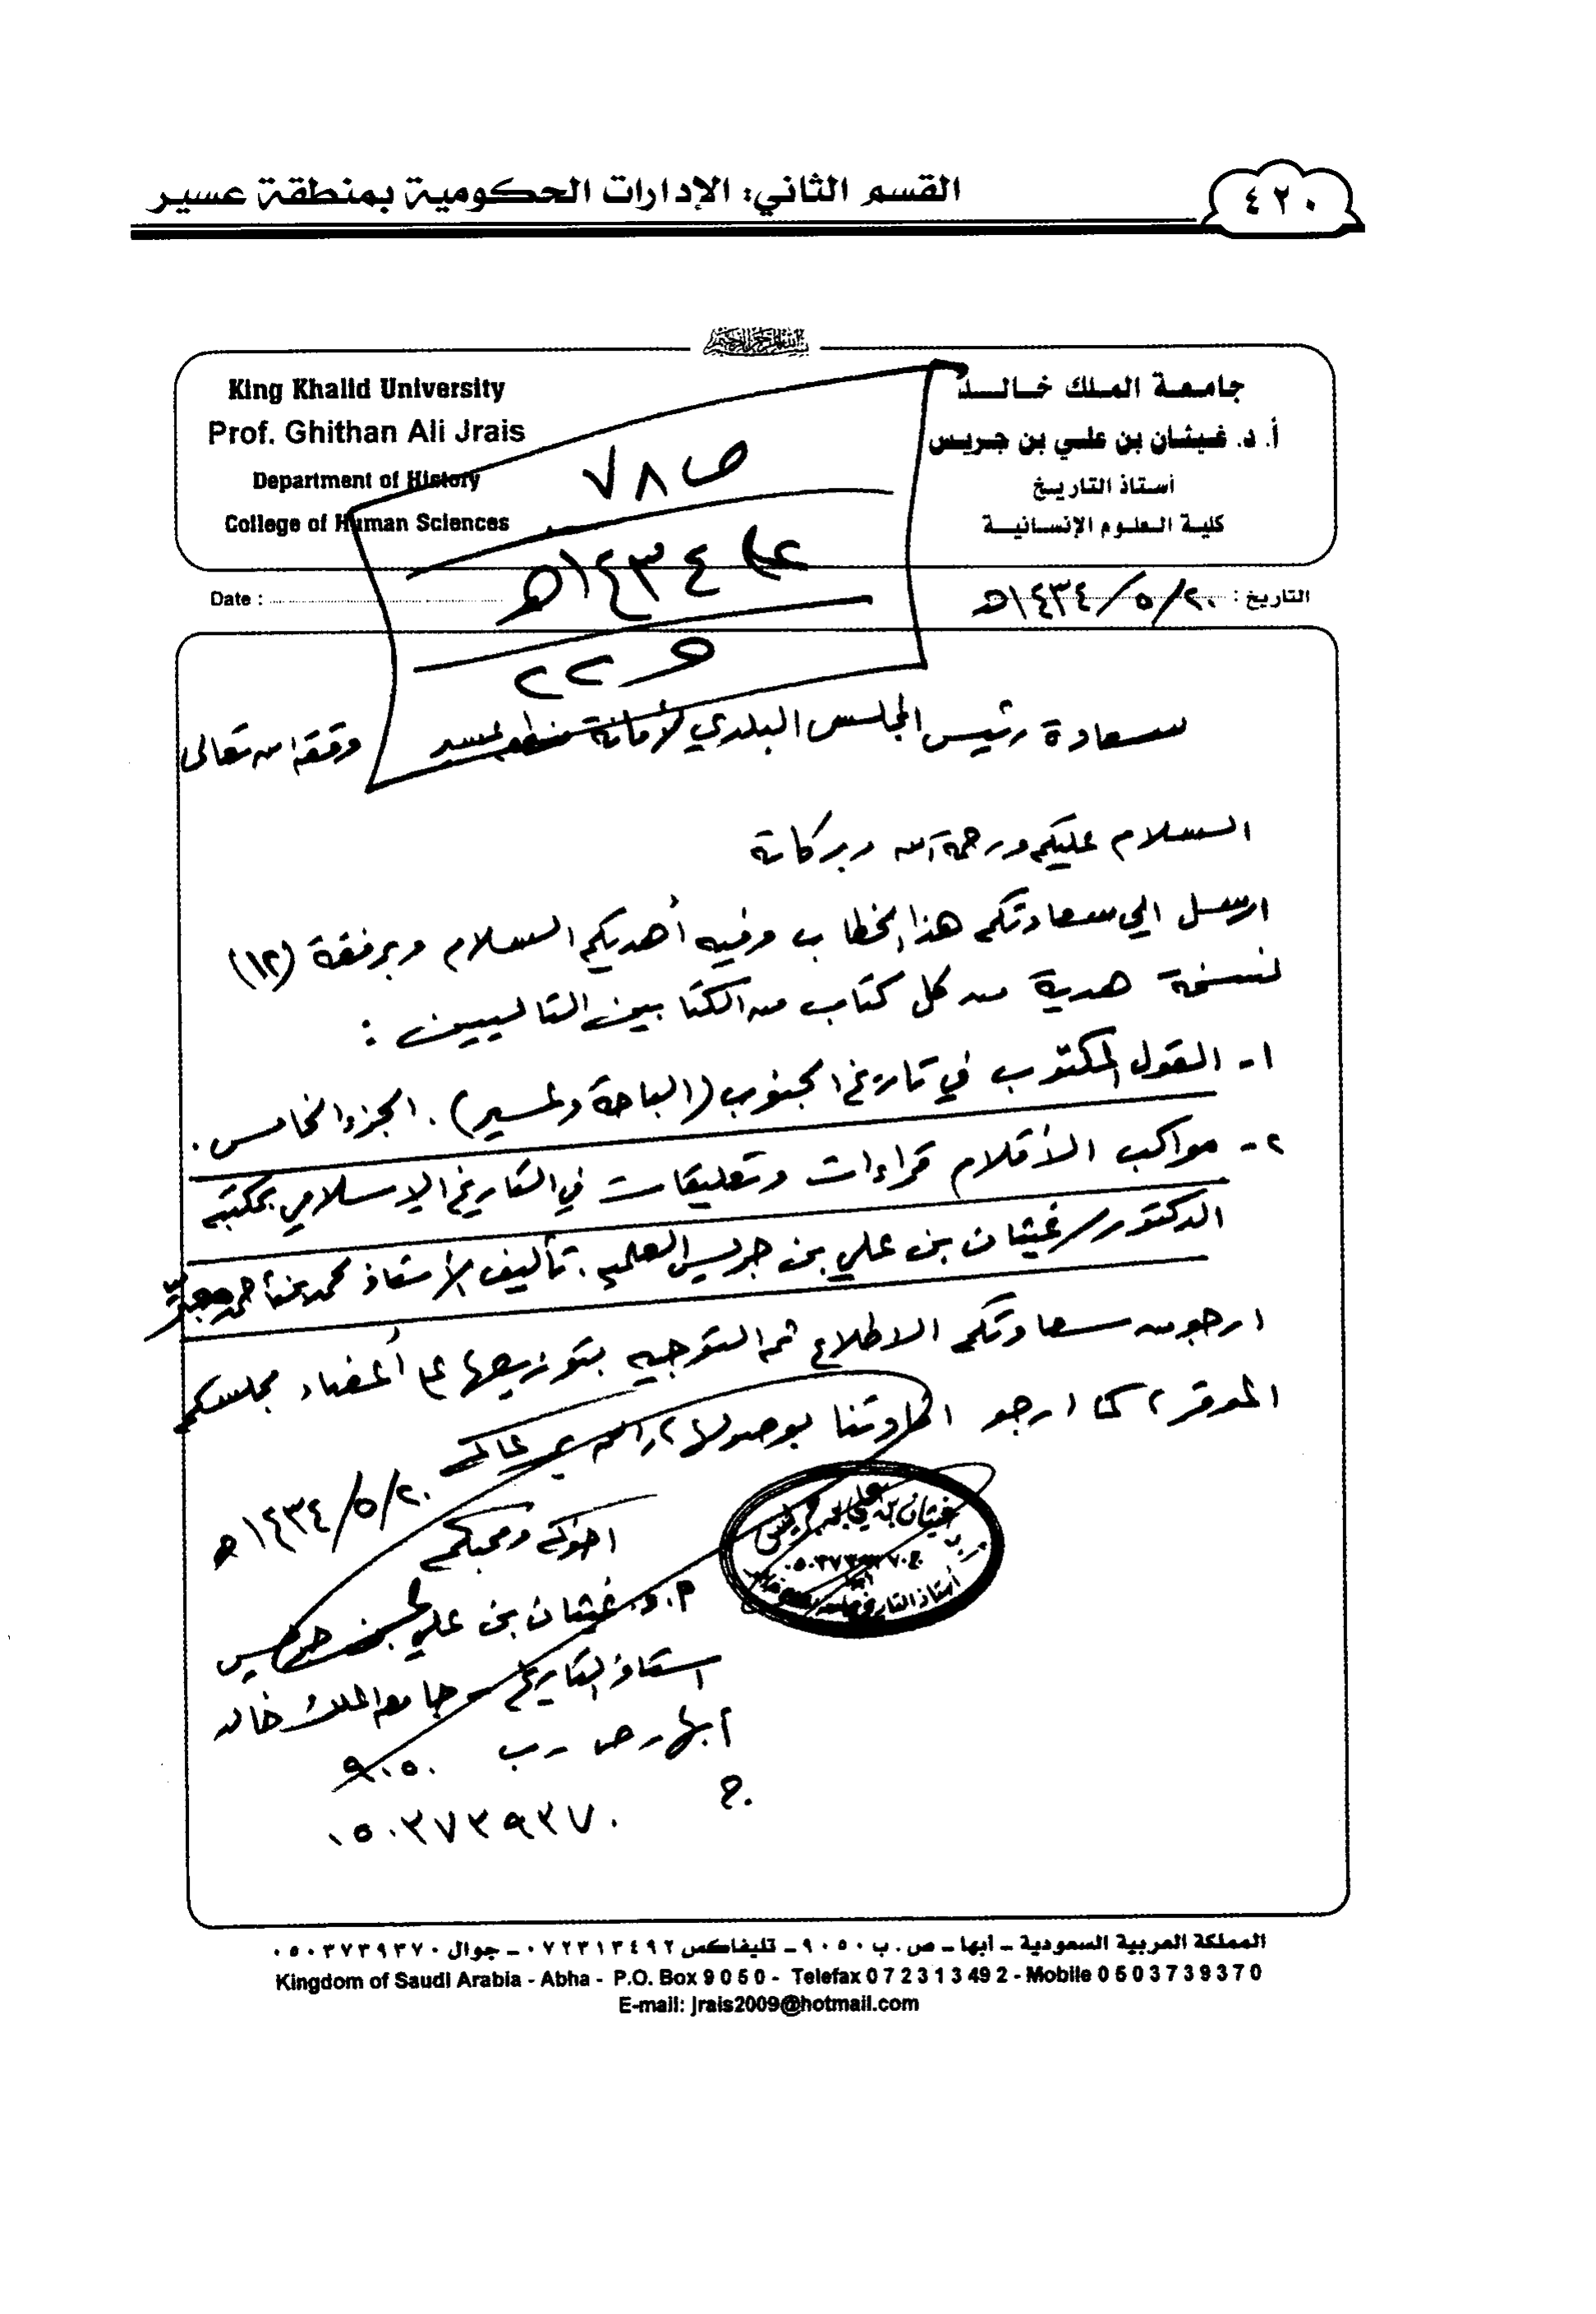 ٤٢٠
القسم الثاني: الإدارات الحكومية بمنطقة عسير
جامعة الملك خالد
أ. د. غيثان بن علي بن جريس
أستاذ التاريخ
كلية العلوم الإنسانية
King Khalid University
Prof. Ghithan Ali Jrais
Department of History
College of Human Sciences
ص ٧٨
١٤٣٤هـ
و ٢٢
التاريخ : ٢٠/٥/١٤٣٤هـ
Date :
سعادة رئيس المجلس البلدي لأمانة منطقة عسير وفقه الله تعالى
السلام عليكم ورحمة الله وبركاته
ارسل الى سعادتكم هذا الخطاب وفيه أهديكم السلام وبرفقة (١٢)
نسخة هدية من كل كتاب من الكتابين التاليين :
١- القول المكتوب في تاريخ الجنوب (الباحة وعسير) . الجزء الخامس .
٢- مواكب الأقلام قراءات وتعليقات في التاريخ الإسلامي بمكتبة
الدكتور غيثان بن علي بن جريس العلمية . تأليف الأستاذ محمد بن أحمد معبر
ارجو من سعادتكم الاطلاع ثم التوجيه بتوزيعها على أعضاء مجلسكم
الموقر ، كما ارجو افادتنا بوصولها ، والله يرعاكم
٢٠/٥/١٤٣٤هـ
اخوكم ومحبكم
أ.د. غيثان بن علي بن جريس
استاذ التاريخ جامعة الملك خالد
أبها - ص - ب ٩٠٥٠
ج. ٠٥٠٣٧٣٩٣٧٠
غيثان بن علي بن جريس
ج.٠٥٠٣٧٣٩٣٧٠
أستاذ التاريخ
المملكة العربية السعودية - أبها - ص . ب ٩٠٥٠ - تليفاكس ٠٧٢٣١٣٤٩٢ - جوال ٠٥٠٣٧٣٩٣٧٠
Kingdom of Saudi Arabia - Abha - P.O. Box 9 0 5 0 - Telefax 0 7 2 3 1 3 49 2 - Mobile 0 5 0 3 7 3 9 3 7 0
E-mail: jrais2009@hotmail.com